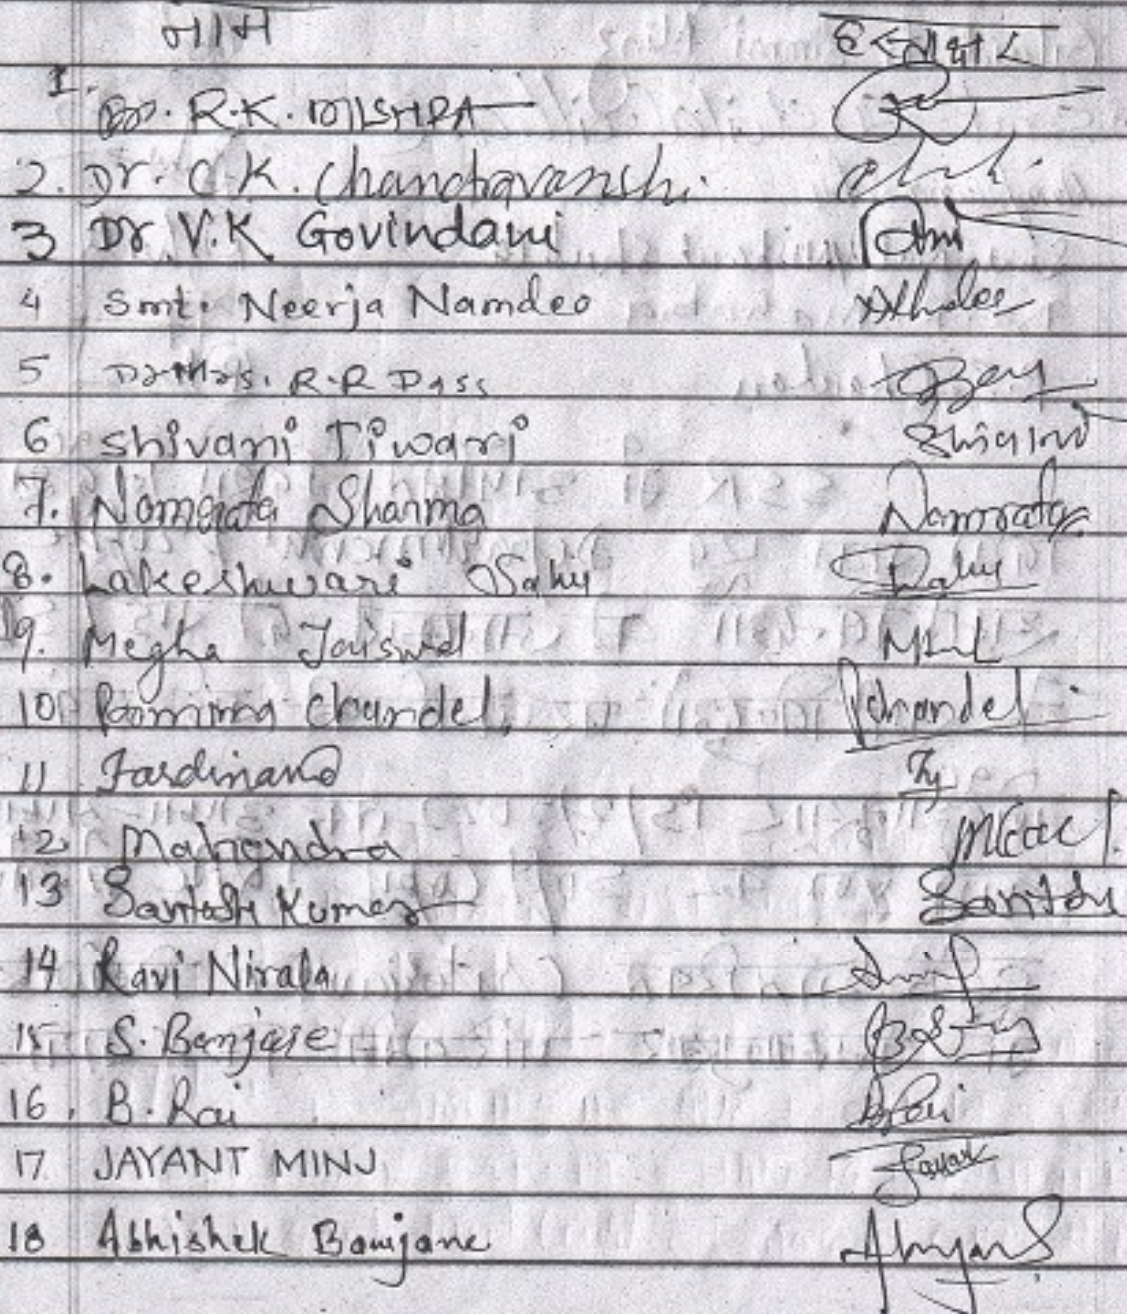 नाम हस्ताक्षर
1. Dr. R.K. MISHRA
2. Dr. C.K. Chandravanshi.
3 Dr V.K Govindani
4 Smt. Neerja Namdeo
5 Dr Mrs. R.R Dass
6 Shivani Tiwari Shivani
7. Namrata Sharma Namrata
8. Lakeshwari Sahu Sahu
9. Megha Jaiswal
10 Purnima Chandel Pchandel
11 Fardinand
12 Mahendra
13 Santosh Kumar Santosh
14 Ravi Nirala
15 S. Banjare
16. B. Rai BRai
17 JAYANT MINJ Jayant
18 Abhishek Banjare